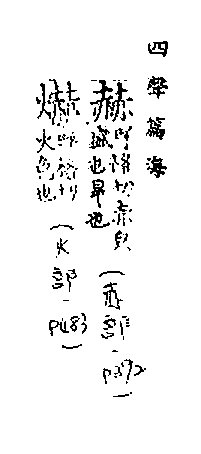 四聲篇海
赫 呼格切赤皃
盛也旱也（赤部 P392）
㷎 許格切
火色也（火部 P483）